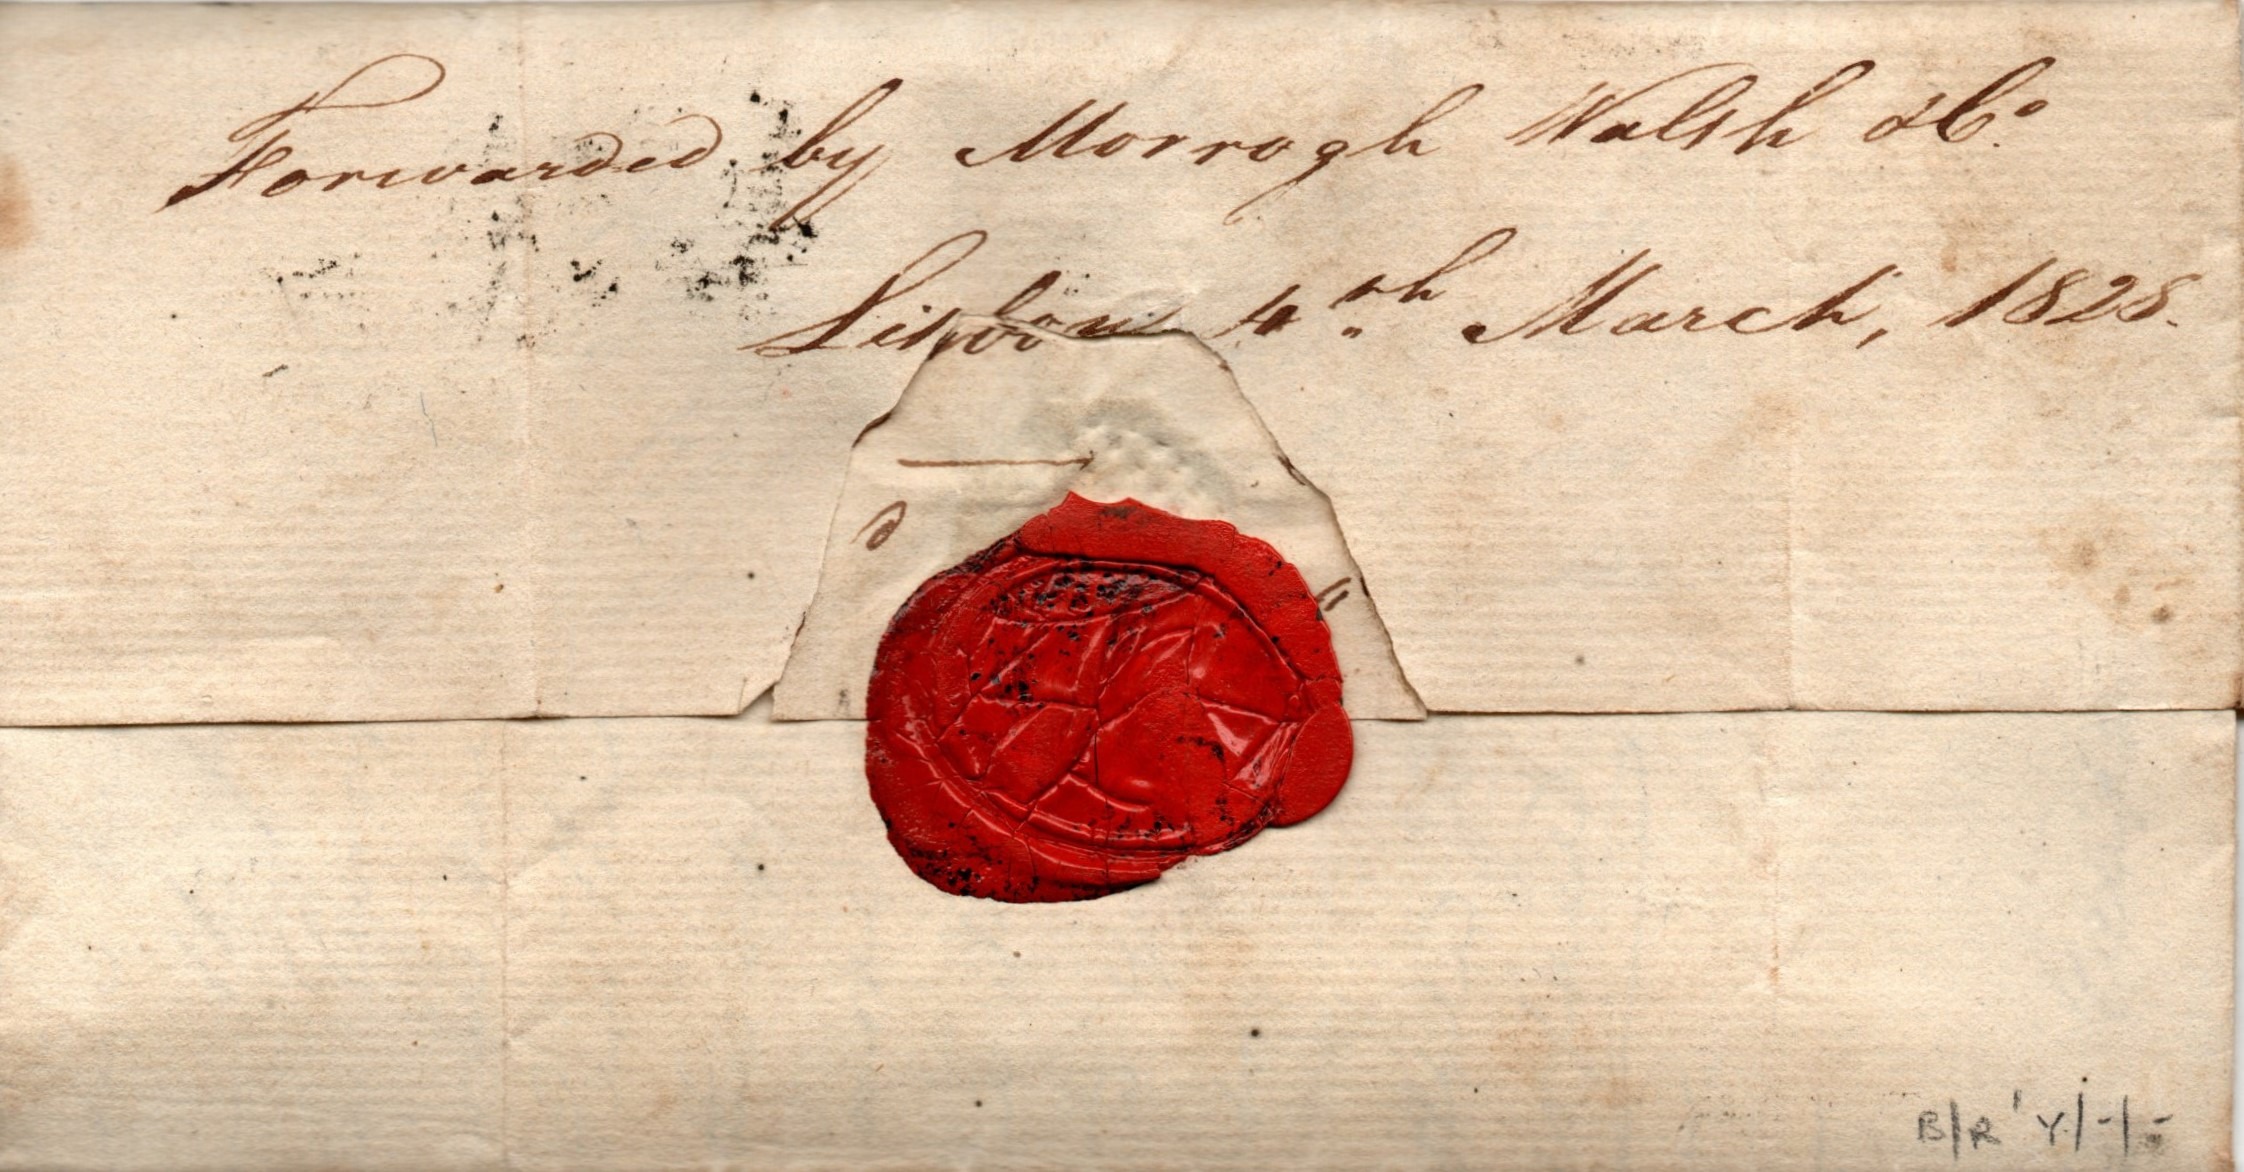 Forwarded by Morrogh Walsh & Co.
Lisbon 4th March, 1828.
B/R ' Y/-/-